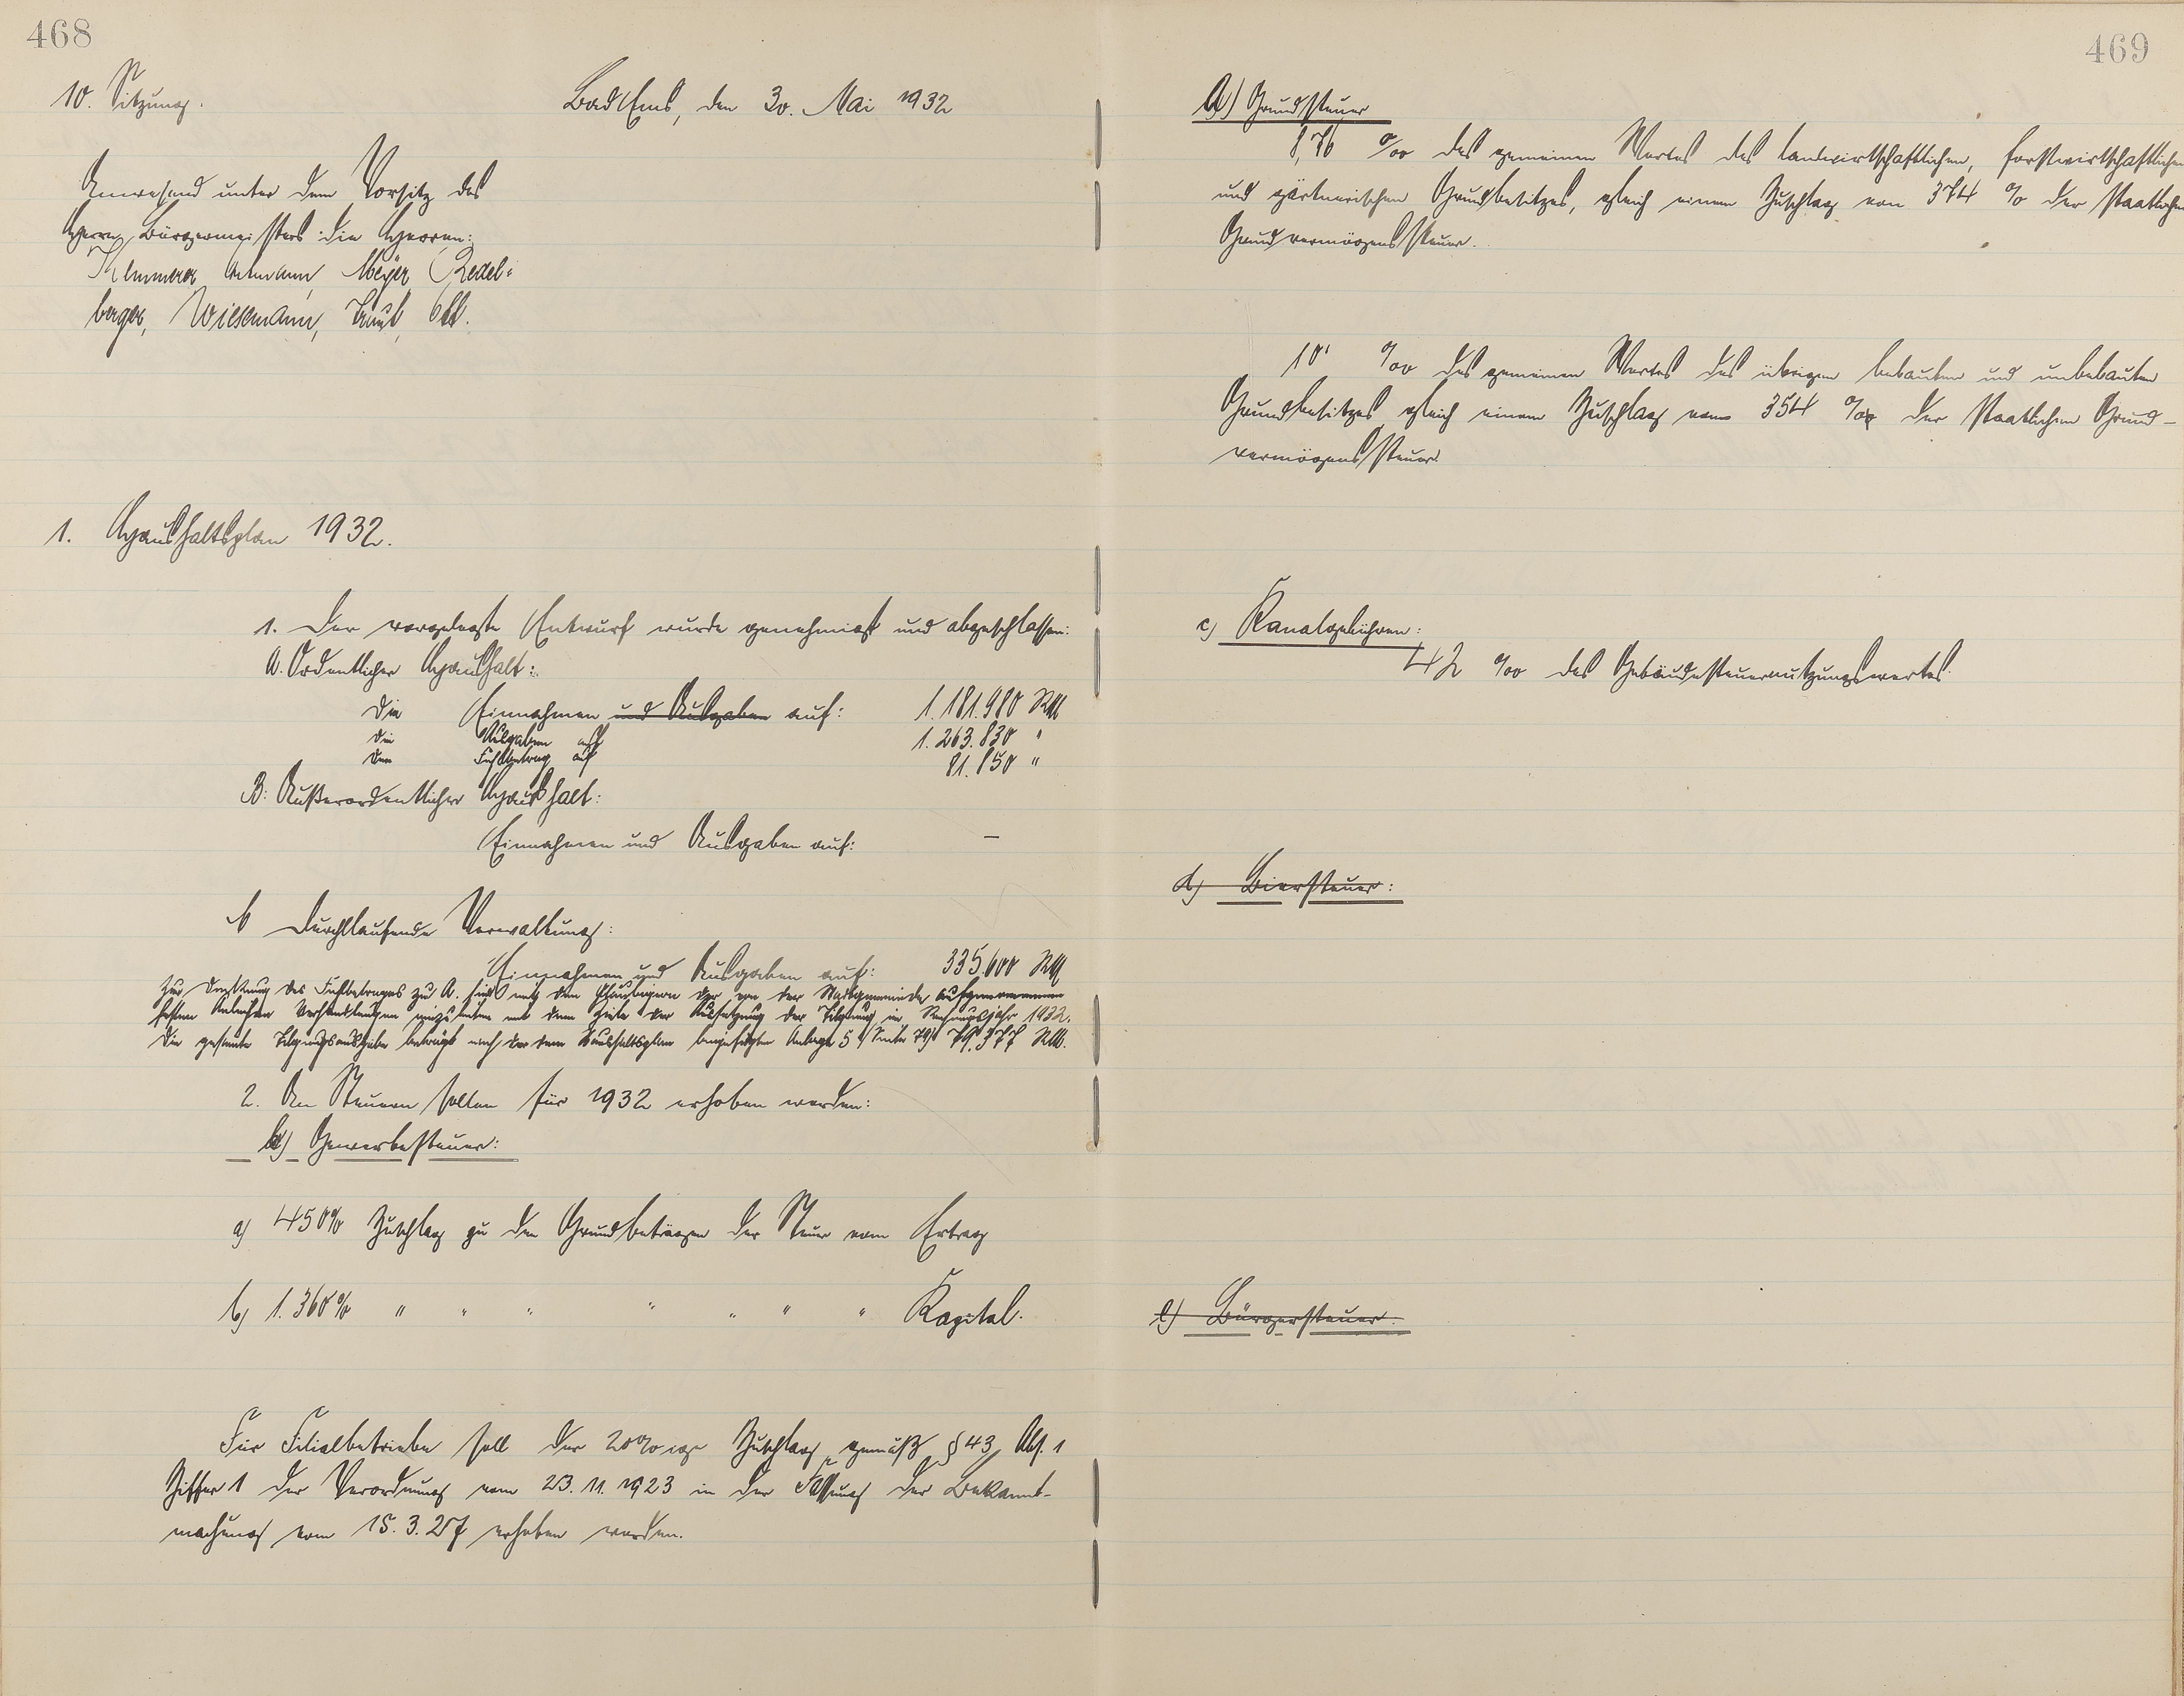 468
10. Sitzung.
Bad Ems, den 30. Mai 1932
Anwesend unter dem Vorsitz des
Herrn Bürgermeisters die Herren:
Meyer, Redel-
berger, Wiesemann, Ott.
1. Haushaltsplan 1932.
1. Der vorgelegte Entwurf wurde genehmigt und abgeschlossen:
A. Ordentlicher Haushalt:
die Einnahmen und Ausgaben auf: 1.181.980 RM
die Ausgaben auf 1.263.830 "
den Fehlbetrag auf 81.850 "
B. Außerordentlicher Haushalt:
Einnahmen und Ausgaben auf: –
C Durchlaufende Verwaltung:
Einnahmen und Ausgaben auf: 335.600 RM
Zur Deckung des Fehlbetrages zu A. sind mit den Gläubigern der von der Stadtgemeinde aufgenommenen
festen Anleihen Verhandlungen mit dem Ziele der Aussetzung der Tilgung im Rechnungsjahr 1932.
Die gesamte Tilgungsausgabe beträgt nach der dem Haushaltsplan beigefügten Anlage 5 (Seite 79) 79.377 RM.
2. An Steuern sollen für 1932 erhoben werden:
b) Gewerbesteuer:
a) 450% Zuschlag zu den Grundbeträgen der Steuer vom Ertrag
b) 1.360% " " " " " " " Kapital.
Für Filialbetriebe soll der 20%ige Zuschlag gemäß § 43 Abs. 1
Ziffer 1 der Verordnung vom 23.11.1923 in der Fassung der Bekannt-
machung vom 15.3.27 erhoben werden.
469
a) Grundsteuer
8,76 ‰ des gemeinen Wertes des landwirtschaftlichen, forstwirtschaftlichen
und gärtnerischen Grundbesitzes, gleich einem Zuschlag von 374 % der staatlichen
Grundvermögenssteuer.
10 ‰ des gemeinen Wertes des übrigen bebauten und unbebauten
Grundbesitzes gleich einem Zuschlag von 354 % der staatlichen Grund-
vermögenssteuer.
c) Kanalgebühren:
42 ‰ des Gebäudesteuernutzungswertes.
d) Biersteuer:
e) Bürgersteuer.